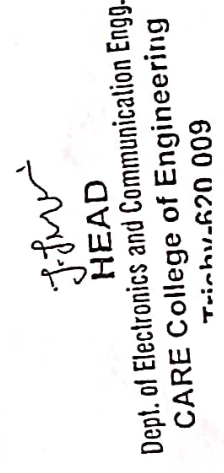 HEAD
Dept. of Electronics and Communication Engg.
CARE College of Engineering
Trichy-620 009